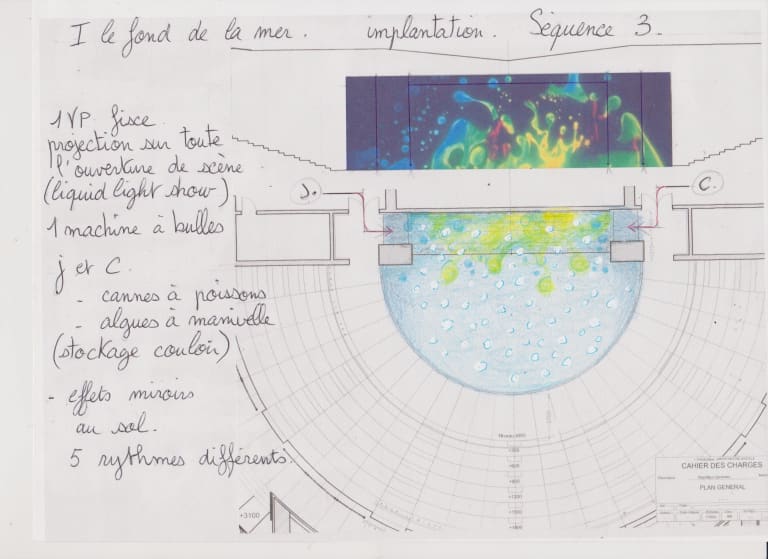 I le fond de la mer. implantation. Séquence 3.
1 VP fisce
projection sur toute
l'ouverture de scène
(liquid light show)
1 machine à bulles
J.
C.
j et C.
- cannes à poissons
- algues à manivelle
(stockage couloir)
- effets miroirs
au sol.
5 rythmes différents.
CAHIER DES CHARGES
PLAN GENERAL
+3100